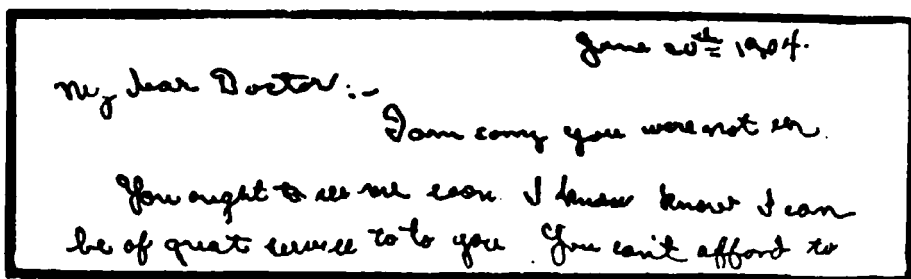 June 20th 1904.
My dear Doctor:-
I am sorry you were not in.
You ought to see me soon. I know know I can
be of great service to to you. You can't afford to